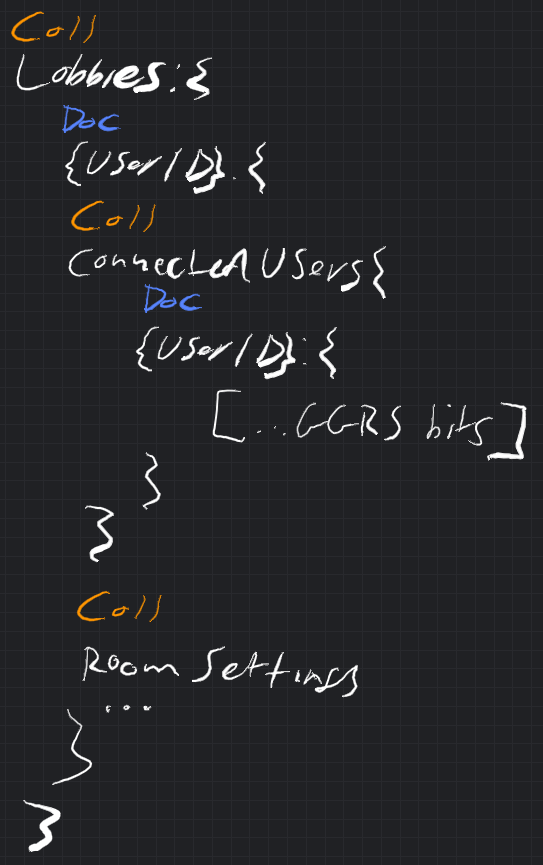 Coll
Lobbies:{
Doc
{UserID}:{
Coll
ConnectedUsers{
Doc
{UserID}:{
[...GGRS bits]
}
}
Coll
Room Settings
...
}
}